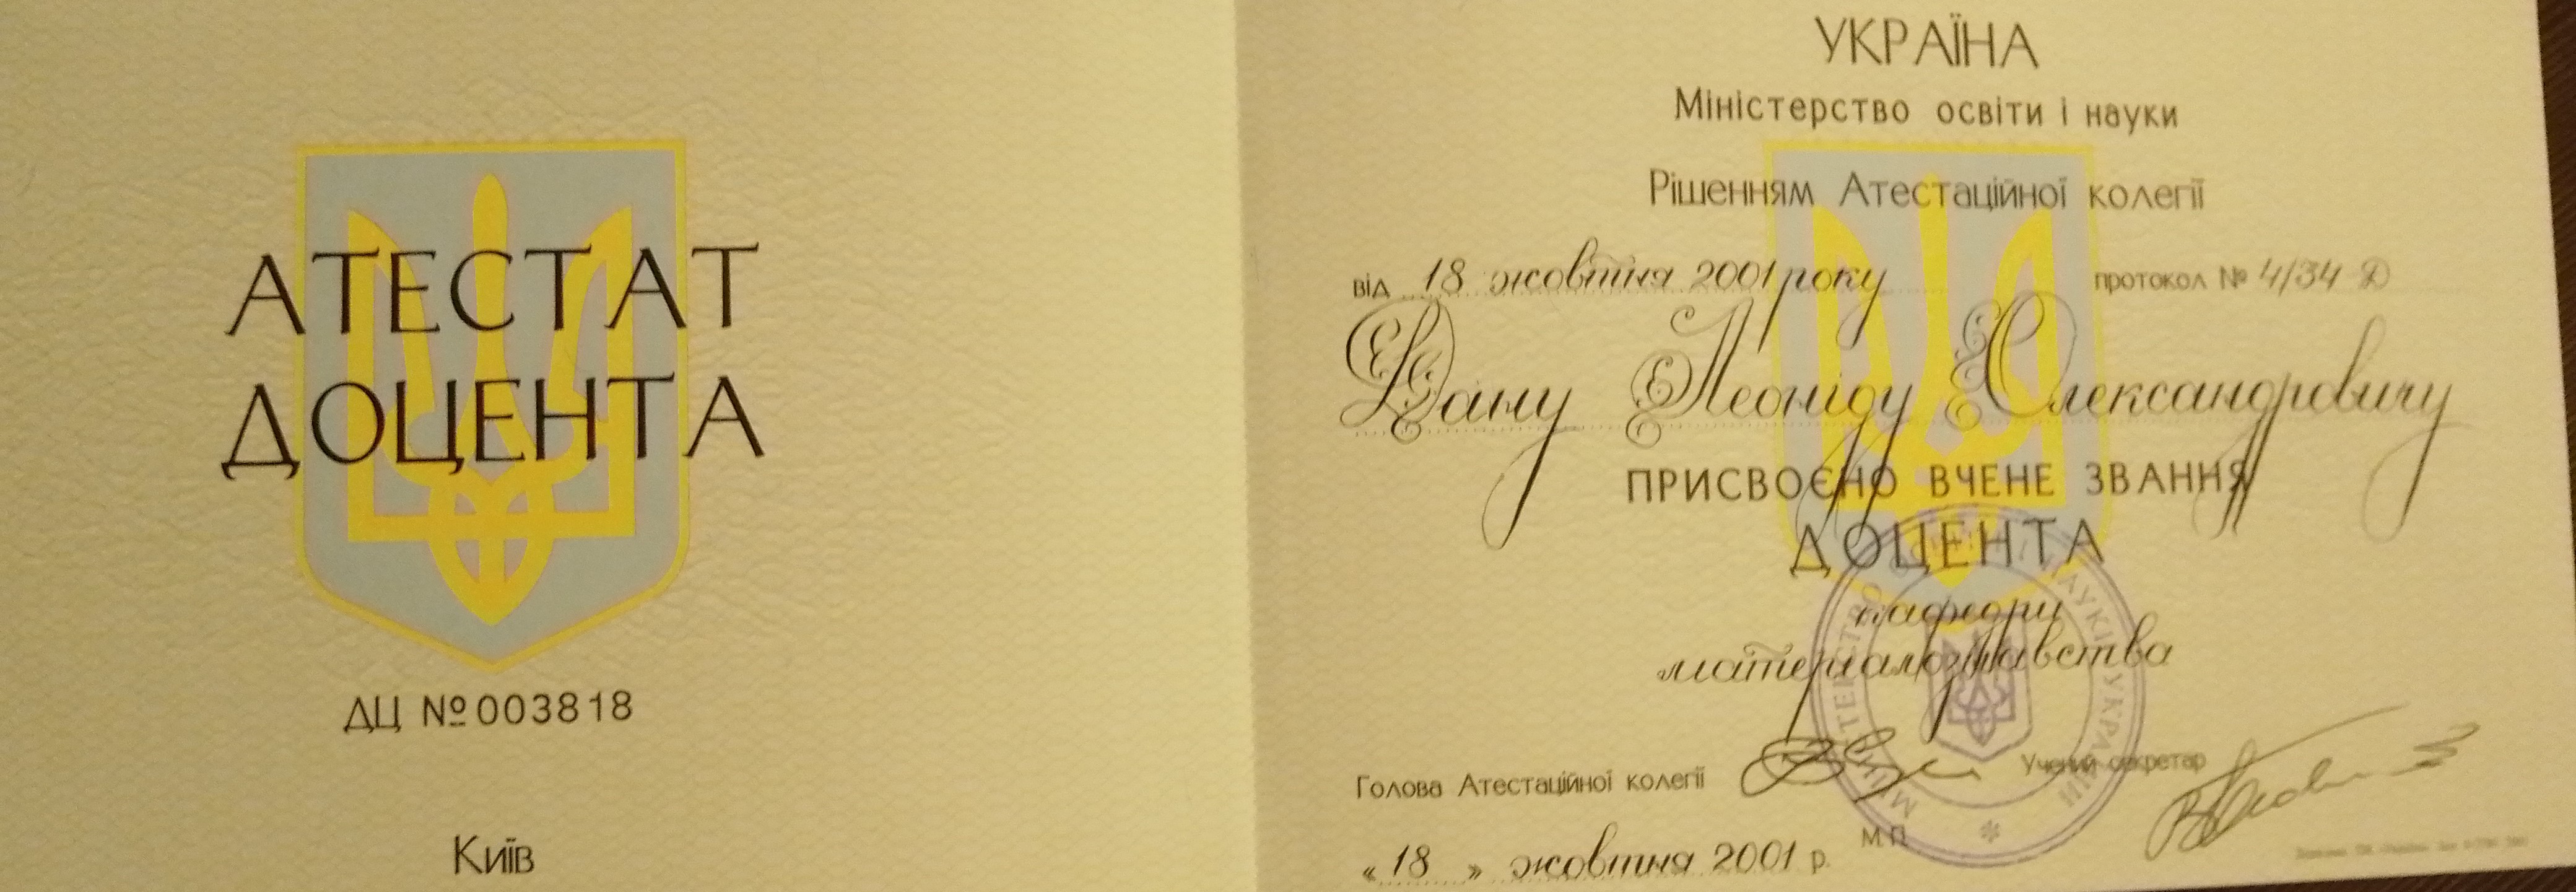 АТЕСТАТ
ДОЦЕНТА
ДЦ №003818
Київ
УКРАЇНА
Міністерство освіти і науки
Рішенням Атестаційної колегії
від 18 жовтня 2001 року протокол № 4/34 Д
Дану Леоніду Олександровичу
ПРИСВОЄНО ВЧЕНЕ ЗВАННЯ
ДОЦЕНТА
кафедри
матеріалознавства
Голова Атестаційної колегії Учений секретар
М.П.
« 18 » жовтня 2001 р.
МІНІСТЕРСТВО ОСВІТИ І НАУКИ УКРАЇНИ